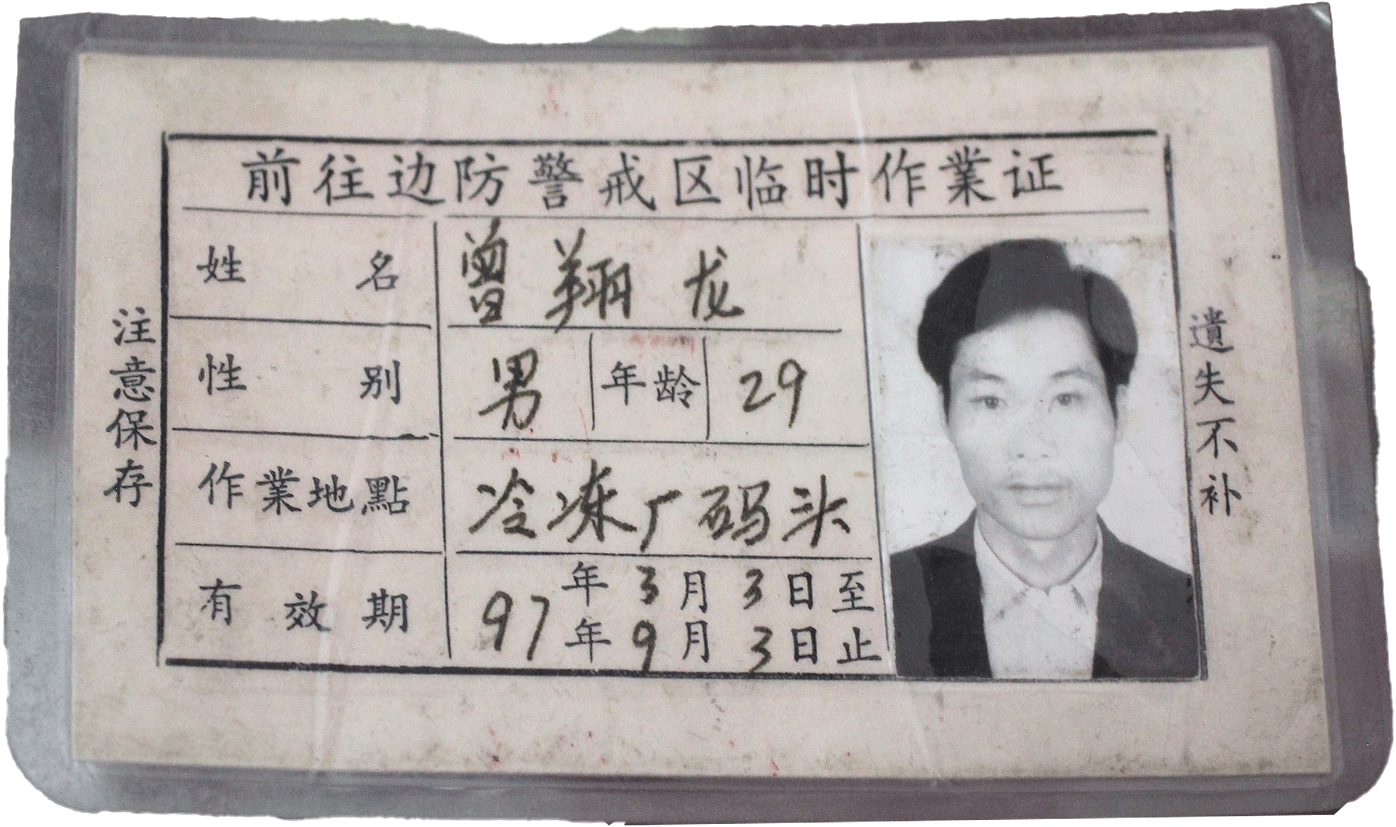 前往边防警戒区临时作業证
姓名 曾翔龙
性别 男 年龄 29
作業地點 冷冻厂码头
有效期 97年3月3日至
97年9月3日止
注意保存
遺失不补